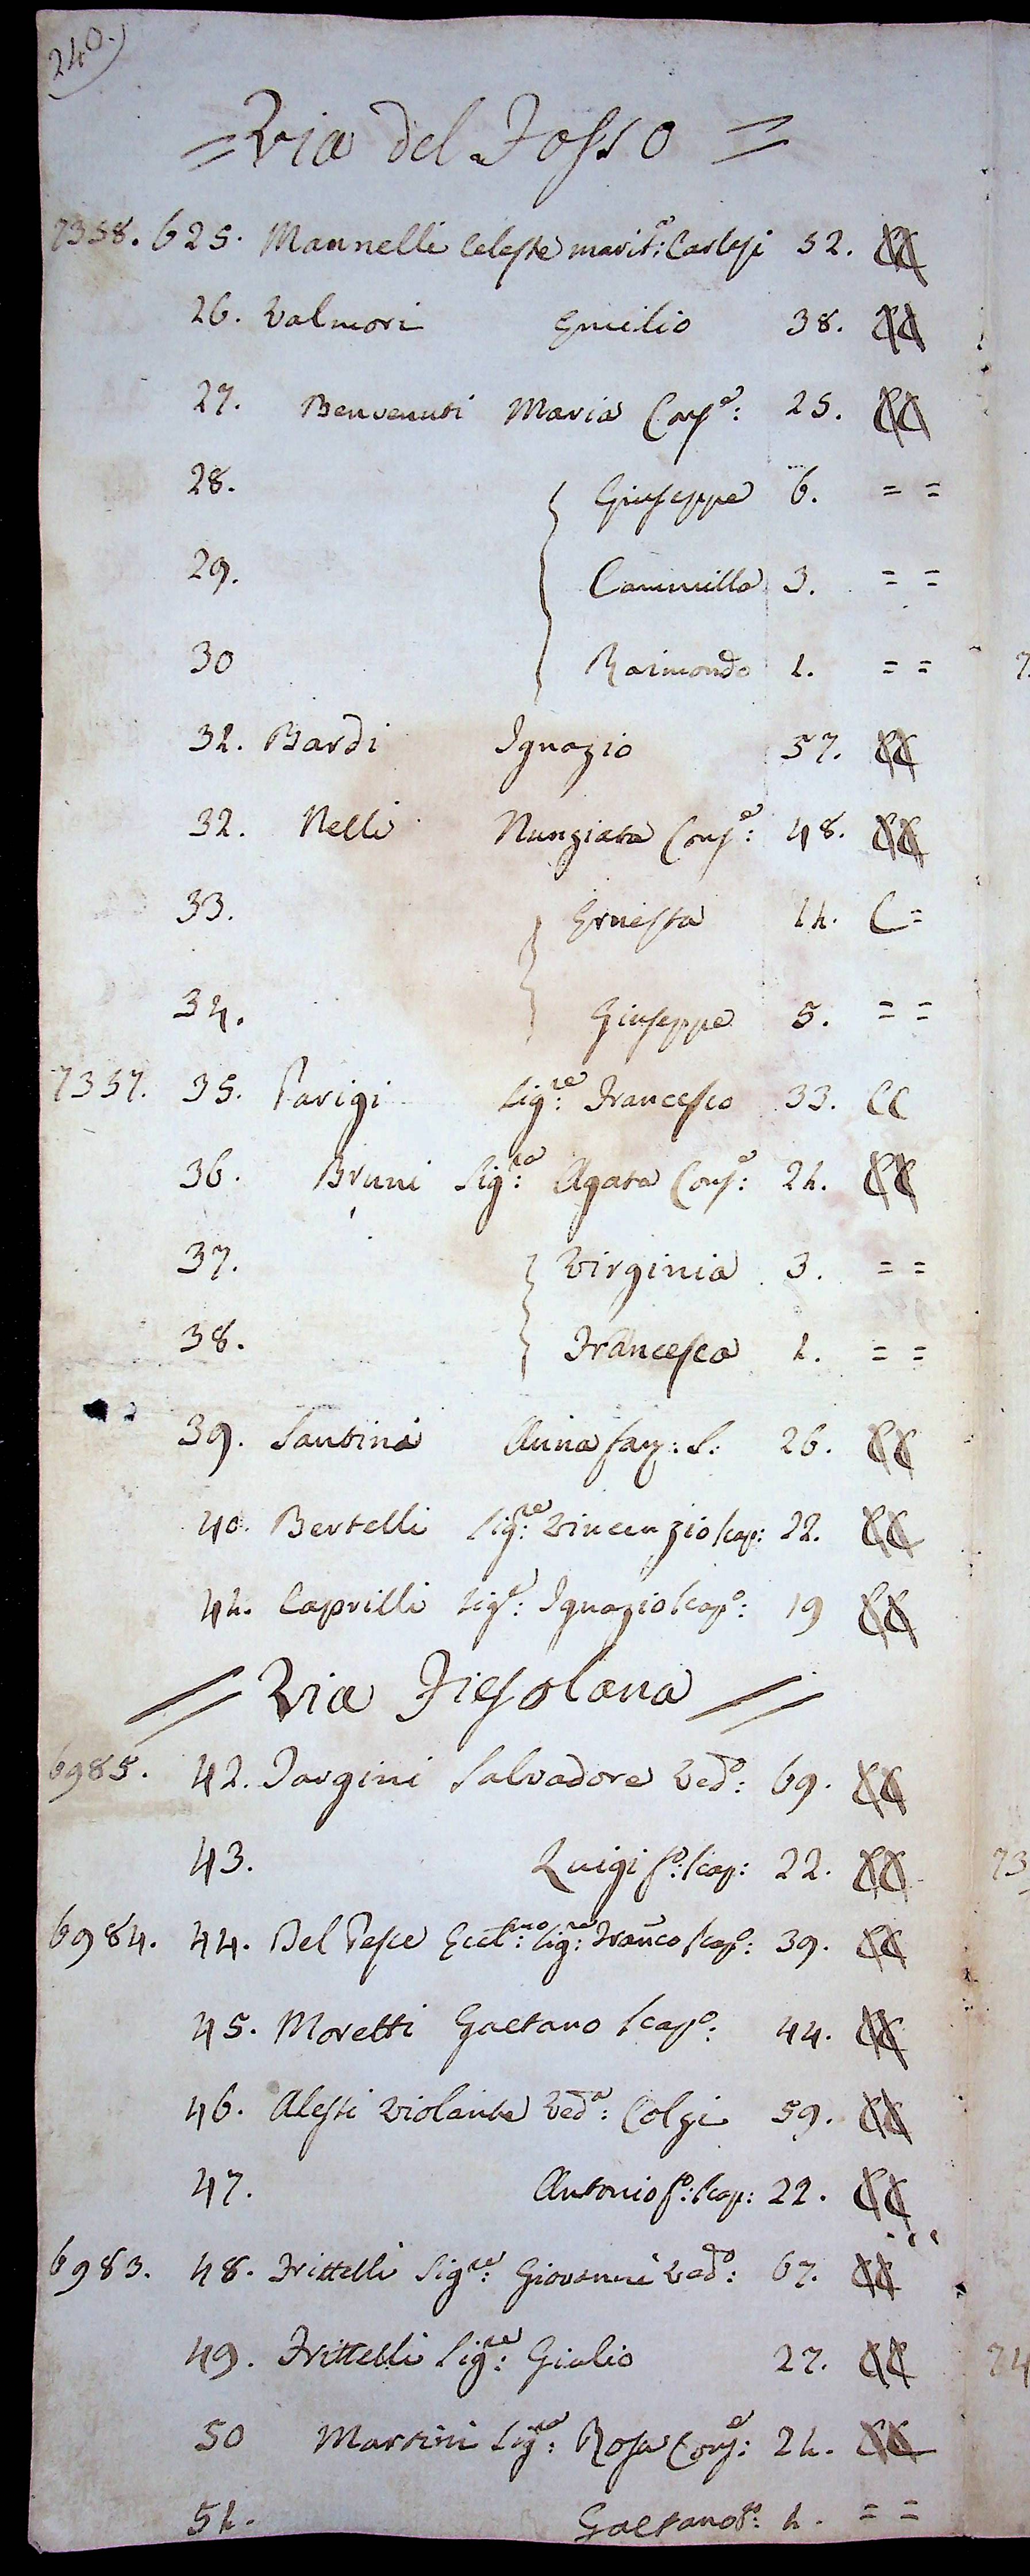 240.
= Via del Fosso =
7358. 625. Mannelli Celeste marit.ª: Carlesi 52. CC
26. Valmori Emilio 38. CC
27. Benvenuti Maria Conj.e: 25. CC
28. Giuseppe 6. = =
29. Cammilla 3. = =
30 Raimondo 1. = =
31. Bardi Ignazio 57. CC
32. Nelli Nunziata Conj.e: 48. CC
33. Ernesta 11. C =
34. Giuseppe 5. = =
7357. 35. Parigi Sig.re: Francesco 33. CC
36. Bruni Sig.ra: Agata Conj.e: 21. CC
37. Virginia 3. = =
38. Francesca 1. = =
39. Santini Anna fan: S: 26. CC
40. Bertelli Sig.re: Vincenzio scap: 22. CC
41. Caprilli Sig.e: Ignazio scap.o: 19 CC
= Via Fiesolana =
6985. 42. Fargini Salvadore Ved.o: 69. CC
43. Luigi f.o: scap: 22. CC
6984. 44. Del Pesce Eccl.mo: Sig.re: Franco scap.o: 39. CC
45. Moretti Gaetano scap.o: 44. CC
46. Alessi Violante Ved.a: Colzi 59. CC
47. Antonio f.o: scap: 22. CC
6983. 48. Frittelli Sig.re: Giovanni Ved.o: 67. CC
49. Frittelli Sig.re: Giulio 27. CC
50 Martini Sig.ra: Rosa Conj.e: 21. CC
51. Gaetano f.o: 1. = =